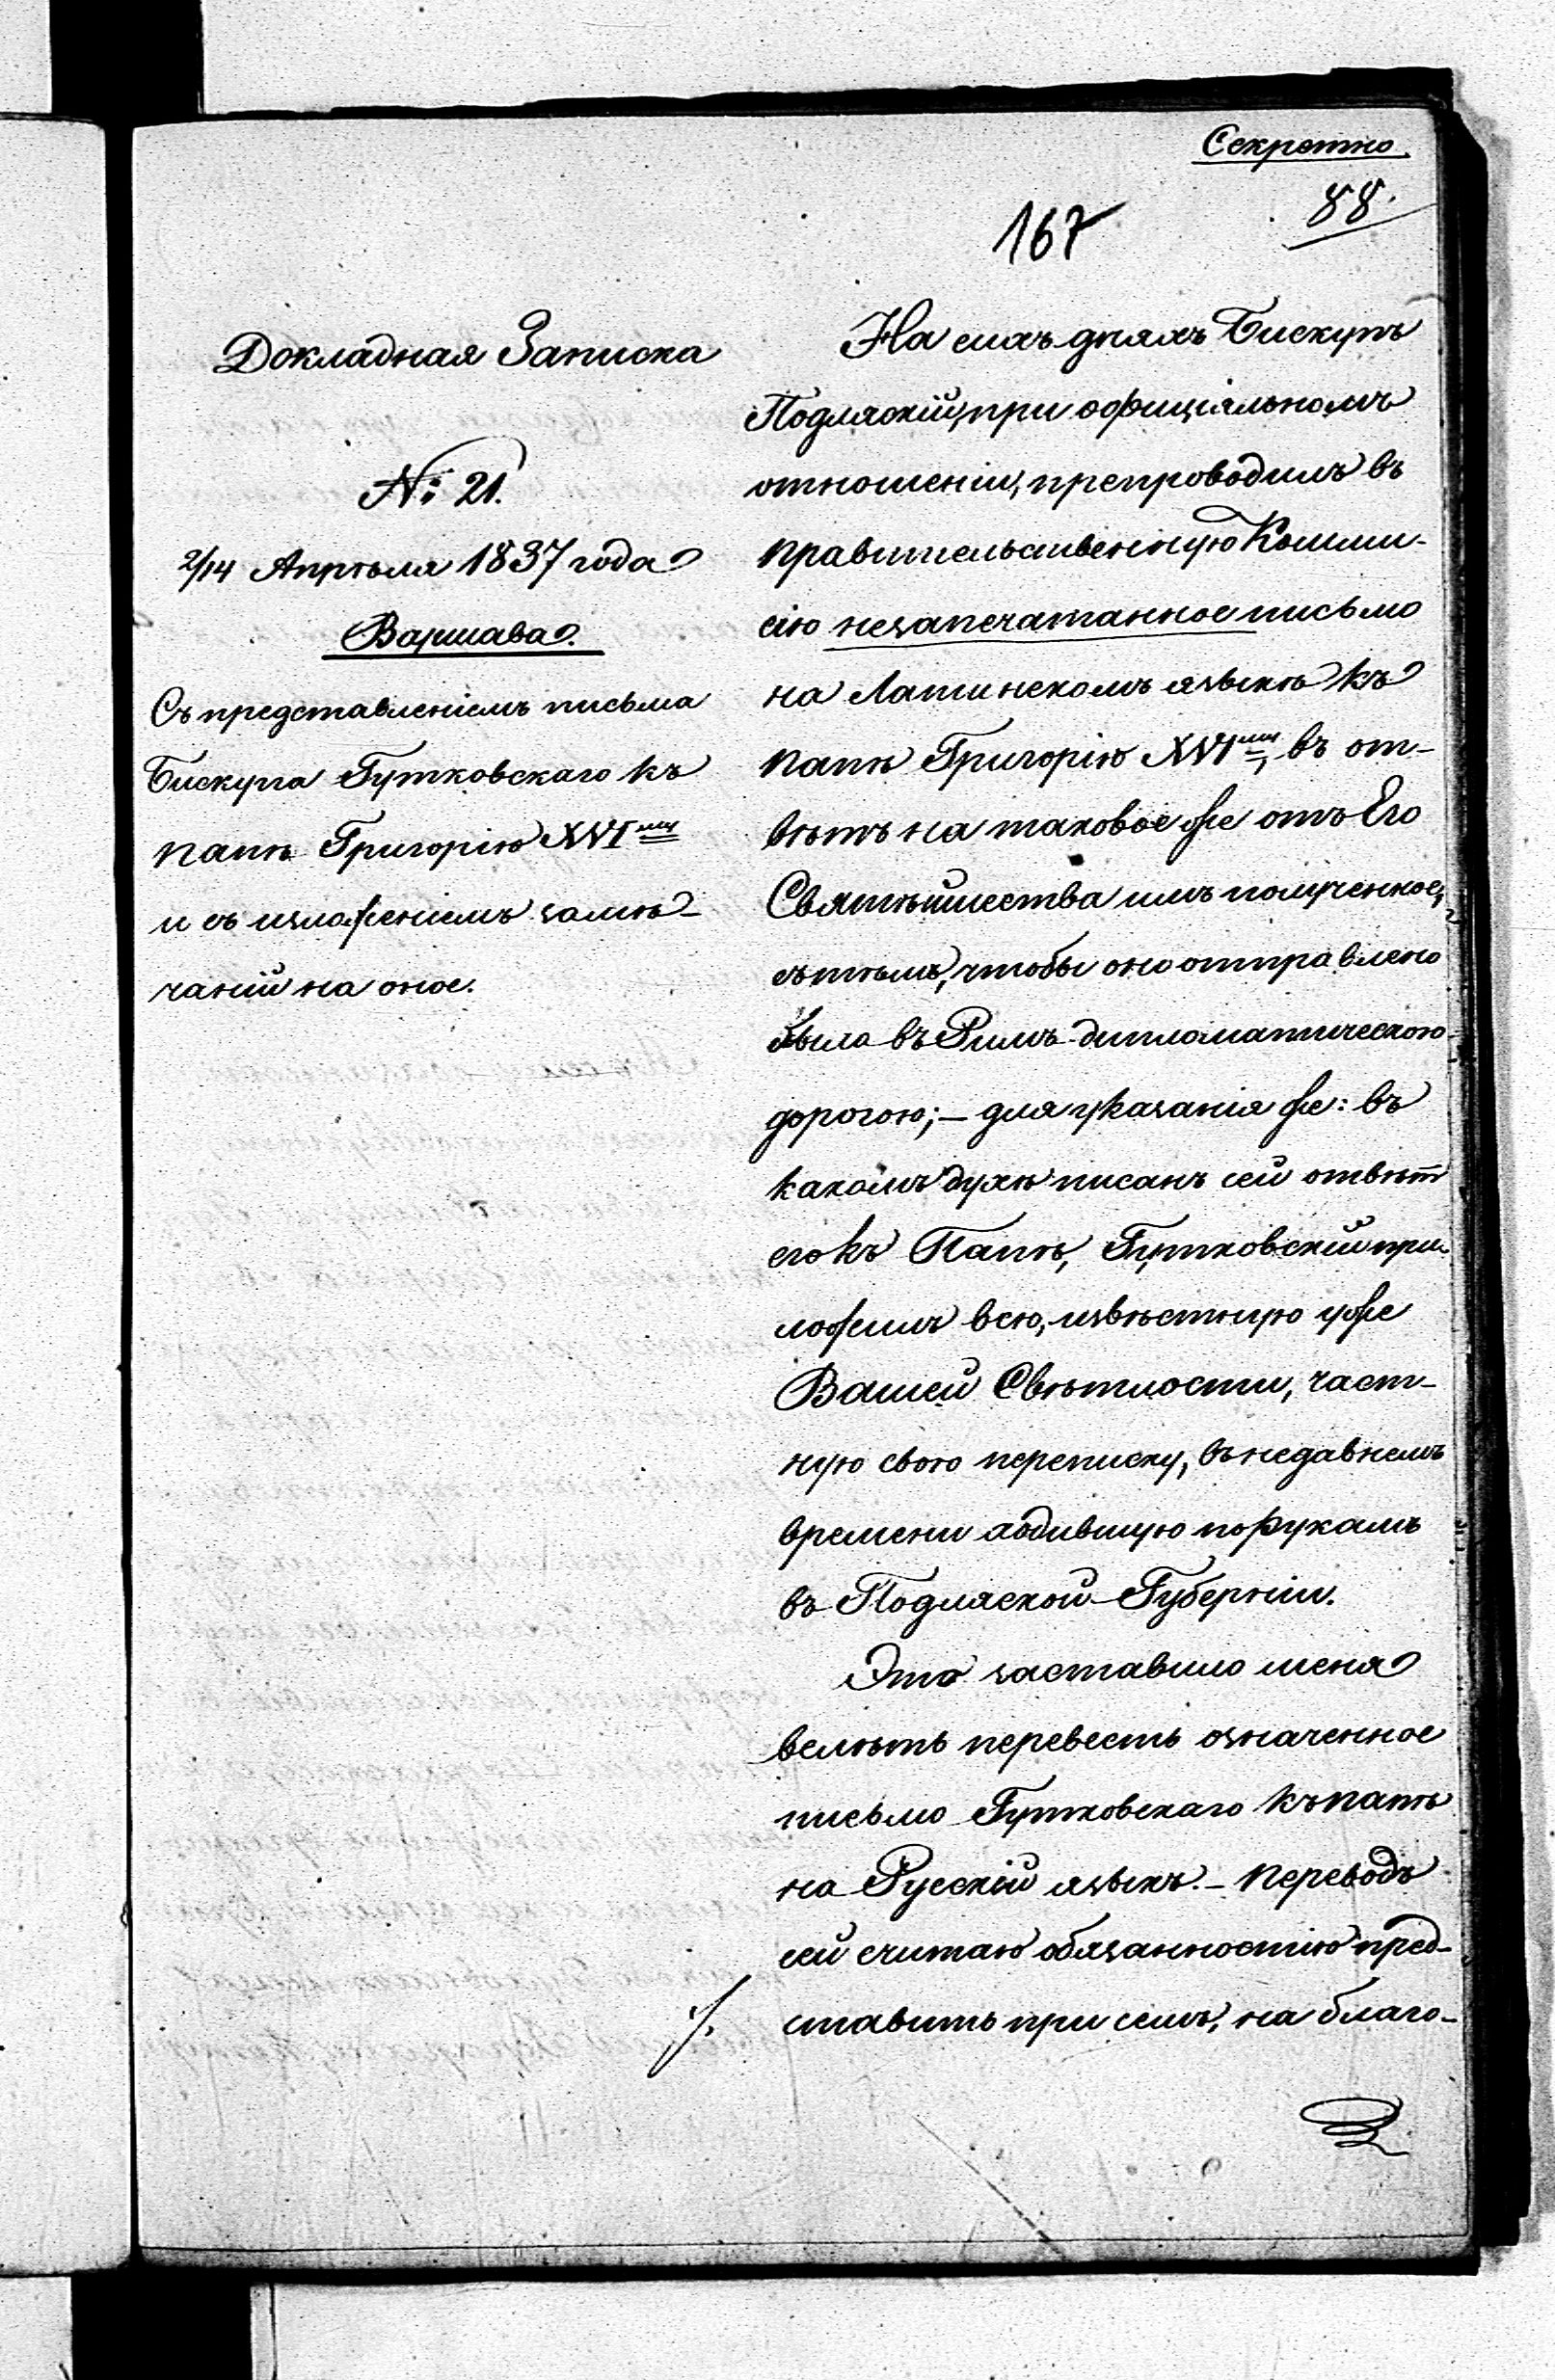 Секретно.
88.
167
Докладная Записка
№: 21.
2/14 Апрѣля 1837 года
Варшава.
Съ представленіемъ письма
Бискупа Гутковскаго къ
папѣ Григорію XVIму
и съ изложеніемъ замѣ-
чаній на оное.
На сихъ дняхъ Бискупъ
Подляскій, при оффиціальномъ
отношеніи, препроводилъ въ
Правительственную Комми-
сію незапечатанное письмо
на Латинскомъ языкѣ къ
папѣ Григорію XVIму, въ от-
вѣтъ на таковое же отъ Его
Святѣйшества имъ полученное,
съ тѣмъ, чтобы оно отправлено
было въ Римъ дипломатическою
дорогою; – для указанія же: въ
какомъ духѣ писанъ сей отвѣт
его къ Папѣ, Гутковскій при-
ложилъ всю, извѣстную уже
Вашей Свѣтлости, част-
ную свою переписку, въ недавнемъ
времени ходившую по рукамъ
въ Подляской Губерніи.
Это заставило меня
велѣть перевесть означенное
письмо Гутковскаго къ папѣ
на Русскій языкъ. – Переводъ
сей считаю обязанностію пред-
ставить при семъ, на благо-